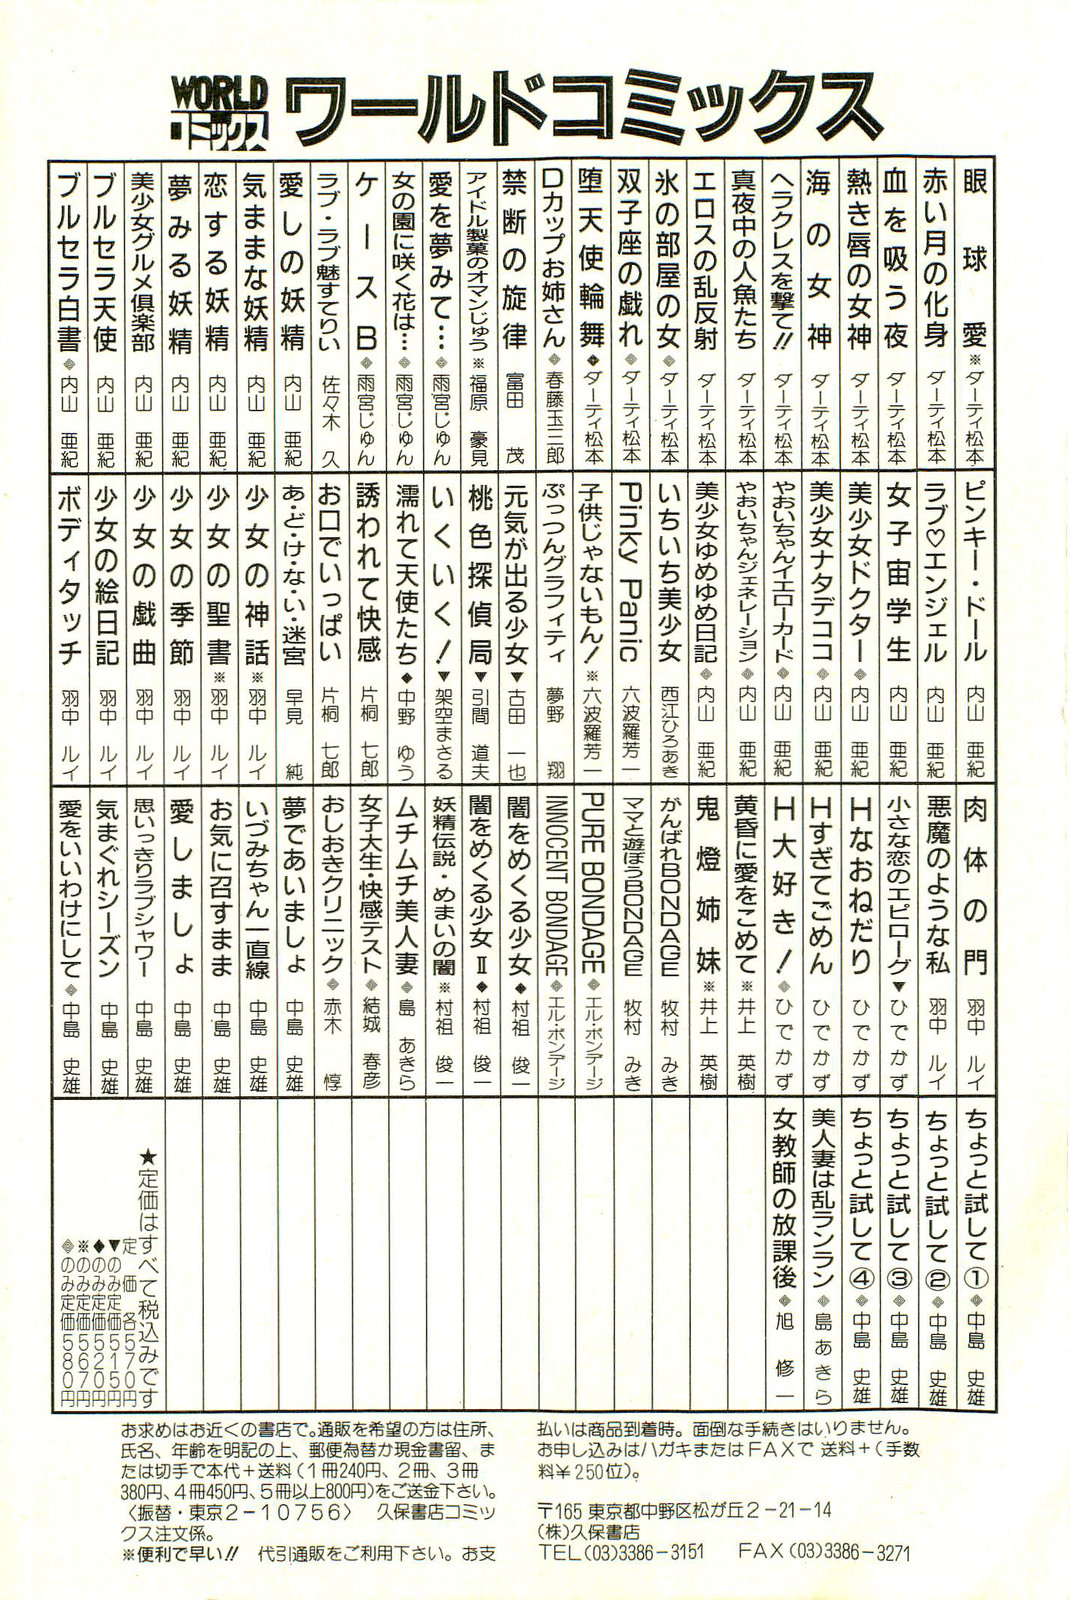 WORLD
コミックス
ワールドコミックス
眼球愛※ダーティ松本
赤い月の化身 ダーティ松本
血を吸う夜 ダーティ松本
熱き唇の女神 ダーティ松本
海の女神 ダーティ松本
ヘラクレスを撃て!! ダーティ松本
真夜中の人魚たち ダーティ松本
エロスの乱反射 ダーティ松本
氷の部屋の女◈ダーティ松本
双子座の戯れ◈ダーティ松本
堕天使輪舞◆ダーティ松本
Dカップお姉さん◈春藤玉三郎
禁断の旋律 富田 茂
アイドル製菓のオマンじゅう※福原 豪見
愛を夢みて…◈雨宮じゅん
女の園に咲く花は…◈雨宮じゅん
ケースB◈雨宮じゅん
ラブ・ラブ魅すてりい 佐々木 久
愛しの妖精 内山 亜紀
気ままな妖精 内山 亜紀
恋する妖精 内山 亜紀
夢みる妖精 内山 亜紀
美少女グルメ倶楽部 内山 亜紀
ブルセラ天使 内山 亜紀
ブルセラ白書◈内山 亜紀
ピンキー・ドール 内山 亜紀
ラブ♡エンジェル 内山 亜紀
女子宙学生 内山 亜紀
美少女ドクター◈内山 亜紀
美少女ナタデココ◈内山 亜紀
やおいちゃんイエローカード◈内山 亜紀
やおいちゃんジェネレーション◈内山 亜紀
美少女ゆめゆめ日記◈内山 亜紀
いちいち美少女 西江ひろあき
Pinky Panic 六波羅芳一
子供じゃないもん!※六波羅芳一
ぷっつんグラフィティ 夢野 翔
元気が出る少女▼古田 一也
桃色探偵局▼引間 道夫
いくいく!▼架空まさる
濡れて天使たち◆中野 ゆう
誘われて快感 片桐 七郎
お口でいっぱい 片桐 七郎
あ・ど・け・な・い・迷宮 早見 純
少女の神話※羽中 ルイ
少女の聖書※羽中 ルイ
少女の季節 羽中 ルイ
少女の戯曲 羽中 ルイ
少女の絵日記 羽中 ルイ
ボディタッチ 羽中 ルイ
肉体の門 羽中 ルイ
悪魔のような私 羽中 ルイ
小さな恋のエピローグ▼ひでかず
Hなおねだり ひでかず
Hすぎてごめん ひでかず
H大好き!◈ひでかず
黄昏に愛をこめて※井上 英樹
鬼燈姉妹※井上 英樹
がんばれBONDAGE 牧村 みき
ママと遊ぼうBONDAGE 牧村 みき
PURE BONDAGE◈エル・ボンデージ
INNOCENT BONDAGE◈エル・ボンデージ
闇をめくる少女◆村祖 俊一
闇をめくる少女Ⅱ◆村祖 俊一
妖精伝説・めまいの闇※村祖 俊一
ムチムチ美人妻◈島 あきら
女子大生・快感テスト◈結城 春彦
おしおきクリニック◈赤木 惇
夢であいましょ 中島 史雄
いづみちゃん一直線 中島 史雄
お気に召すまま 中島 史雄
愛しましょ 中島 史雄
思いっきりラブシャワー 中島 史雄
気まぐれシーズン 中島 史雄
愛をいいわけにして◈中島 史雄
ちょっと試して①◈中島 史雄
ちょっと試して②◈中島 史雄
ちょっと試して③◈中島 史雄
ちょっと試して④◈中島 史雄
美人妻は乱ランラン◈島 あきら
女教師の放課後◈旭 修一
★定価はすべて税込みです
定価 各570円
▼のみ定価515円
◆のみ定価520円
※のみ定価560円
◈のみ定価580円
お求めはお近くの書店で。通販を希望の方は住所、
氏名、年齢を明記の上、郵便為替か現金書留、ま
たは切手で本代+送料(1冊240円、2冊、3冊
380円、4冊450円、5冊以上800円)をご送金下さい。
〈振替・東京2-10756〉 久保書店コミッ
クス注文係。
※便利で早い!! 代引通販をご利用下さい。お支
払いは商品到着時。面倒な手続きはいりません。
お申し込みはハガキまたはFAXで 送料+(手数
料￥250位)。
〒165 東京都中野区松が丘2-21-14
(株)久保書店
TEL(03)3386-3151 FAX(03)3386-3271